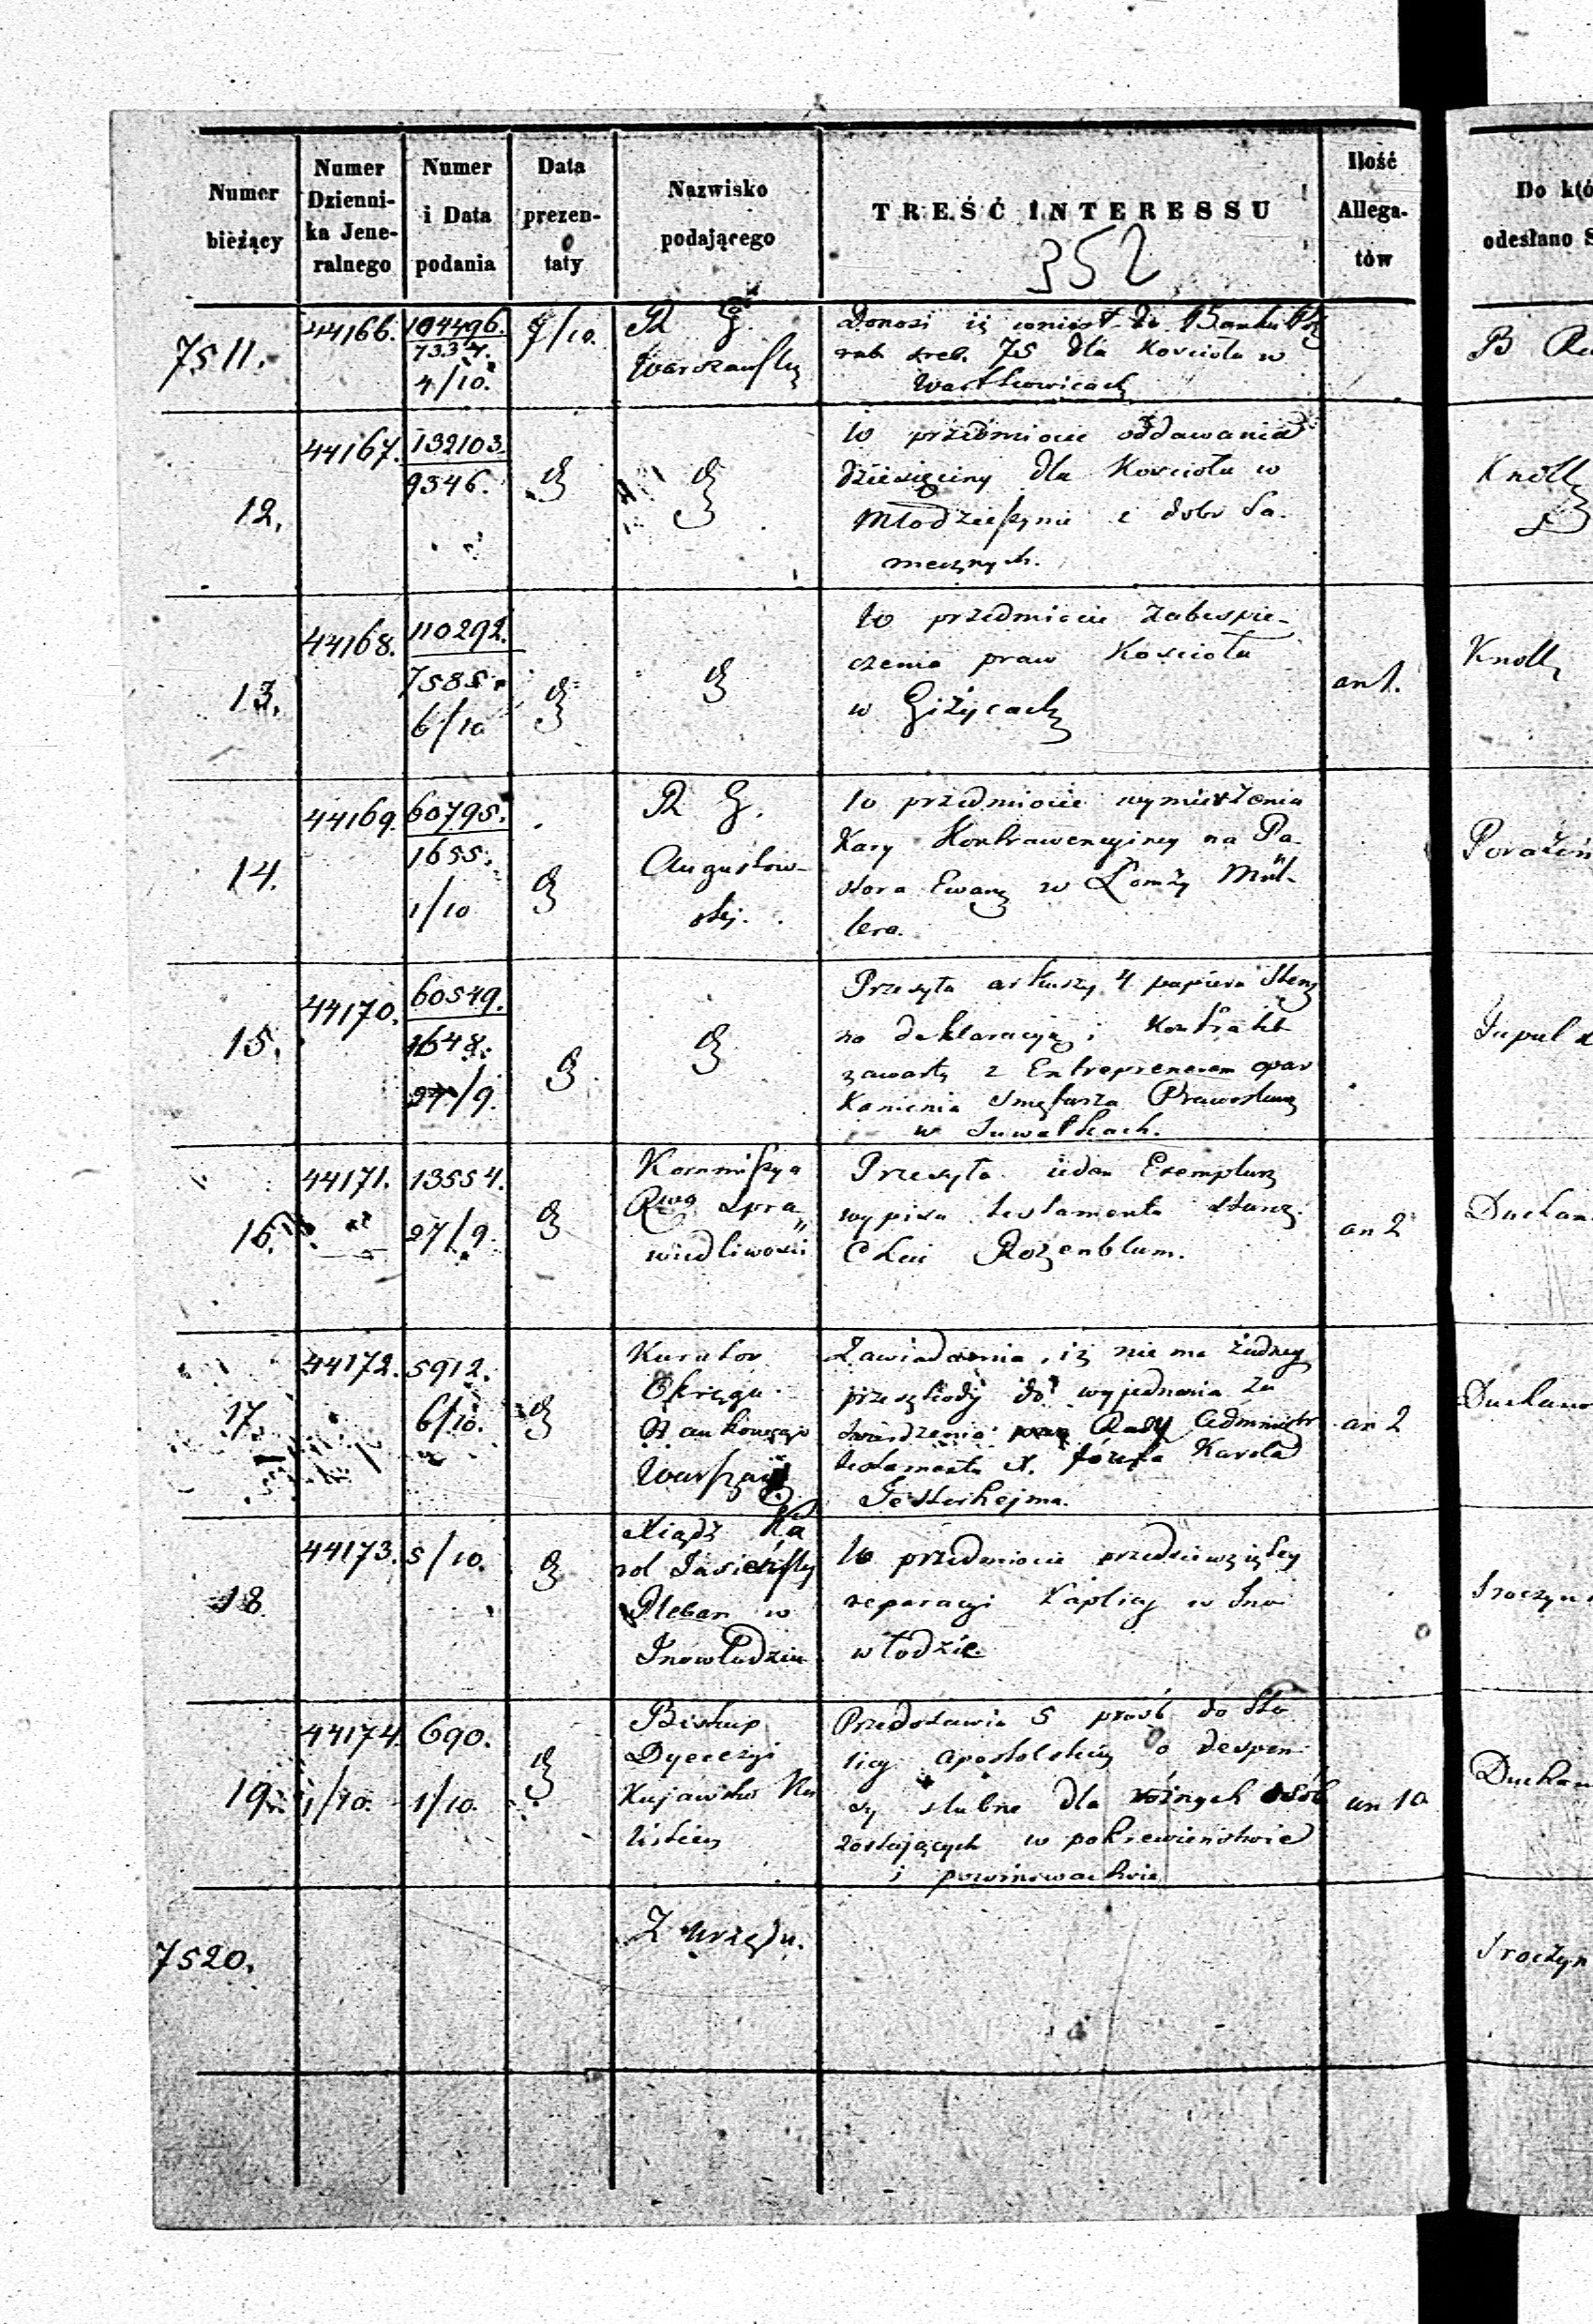 Numer bieżący
Numer Dzienni-
ka Jene-
ralnego
Numer
i Data
podania
Data
prezen-
taty
Nazwisko
podającego
TREŚĆ INTERESSU
352
Ilość
Allega-
tów
Do któ
odesłano S
7511.
44166.
104496.
7337.
4/10.
7/10.
R G.
Warszawsky
Donosi iż wniosł do Banku Pol
rub. sreb. 75 dla Kościoła w
Wartkowicach
B
12.
44167.
132103.
9346.
W przedmiocie oddawania
dziesięciny dla Kościoła w
Młodzieszynie z dobr Sa.
mecznych.
Knoll
13.
44168.
110292.
7585.
6/10
W przedmiocie zabespie-
czenia praw Kościoła
w Giżycach
an 1.
Knoll
14.
44169.
60795.
1655.
1/10
R G.
Augustow-
skiej.
W przedmiocie wymierzenia
Kary Kontrawencyjney na Pa-
stora Ewang w Łomży Mül-
lera.
15.
44170.
60549.
1648.
27/9.
Przesyła arkuszy 4 papieru Stemp
na deklaracyę i Kontrakt
zawarty z Entreprenerem opar
kanienia Smętarza Prawosław
w Suwałkach.
16.
44171.
13554.
27/9.
Kommissya
Rwa Spra
wiedliwości
Przesyła ieden Exemplarz
wypisu testamentu starz.
Chai Rozenblum.
an 2
Duchan
17.
44172.
5912.
6/10.
Kurator
Okręgu
Naukowego
Warszaw
Zawiadamia, iż nie ma żadney
przeszkody do wyjednania za
twierdzenia przez Rady Administr
testamentu X. Józefa Karola
an 2
Duchano
18
44173.
5/10.
Xiądz Ka
rol
Pleban w
Inowłodziu
W przedmiocie przedsięwziętey
reparacyi Kaplicy w Ino
włodzie.
Sroczyn
19.
44174.
1/10.
690.
1/10.
Biskup
Dyecezyi
Kujawsko Ka
liskiey
Przedstawia 5 prośb do Sto
licy Apostolskiey o dyspen
sy slubne dla różnych osób
zostających w pokrewieństwie
i powinowactwie
an 10
Duchan
7520.
Z urzędu.
Sroczyn